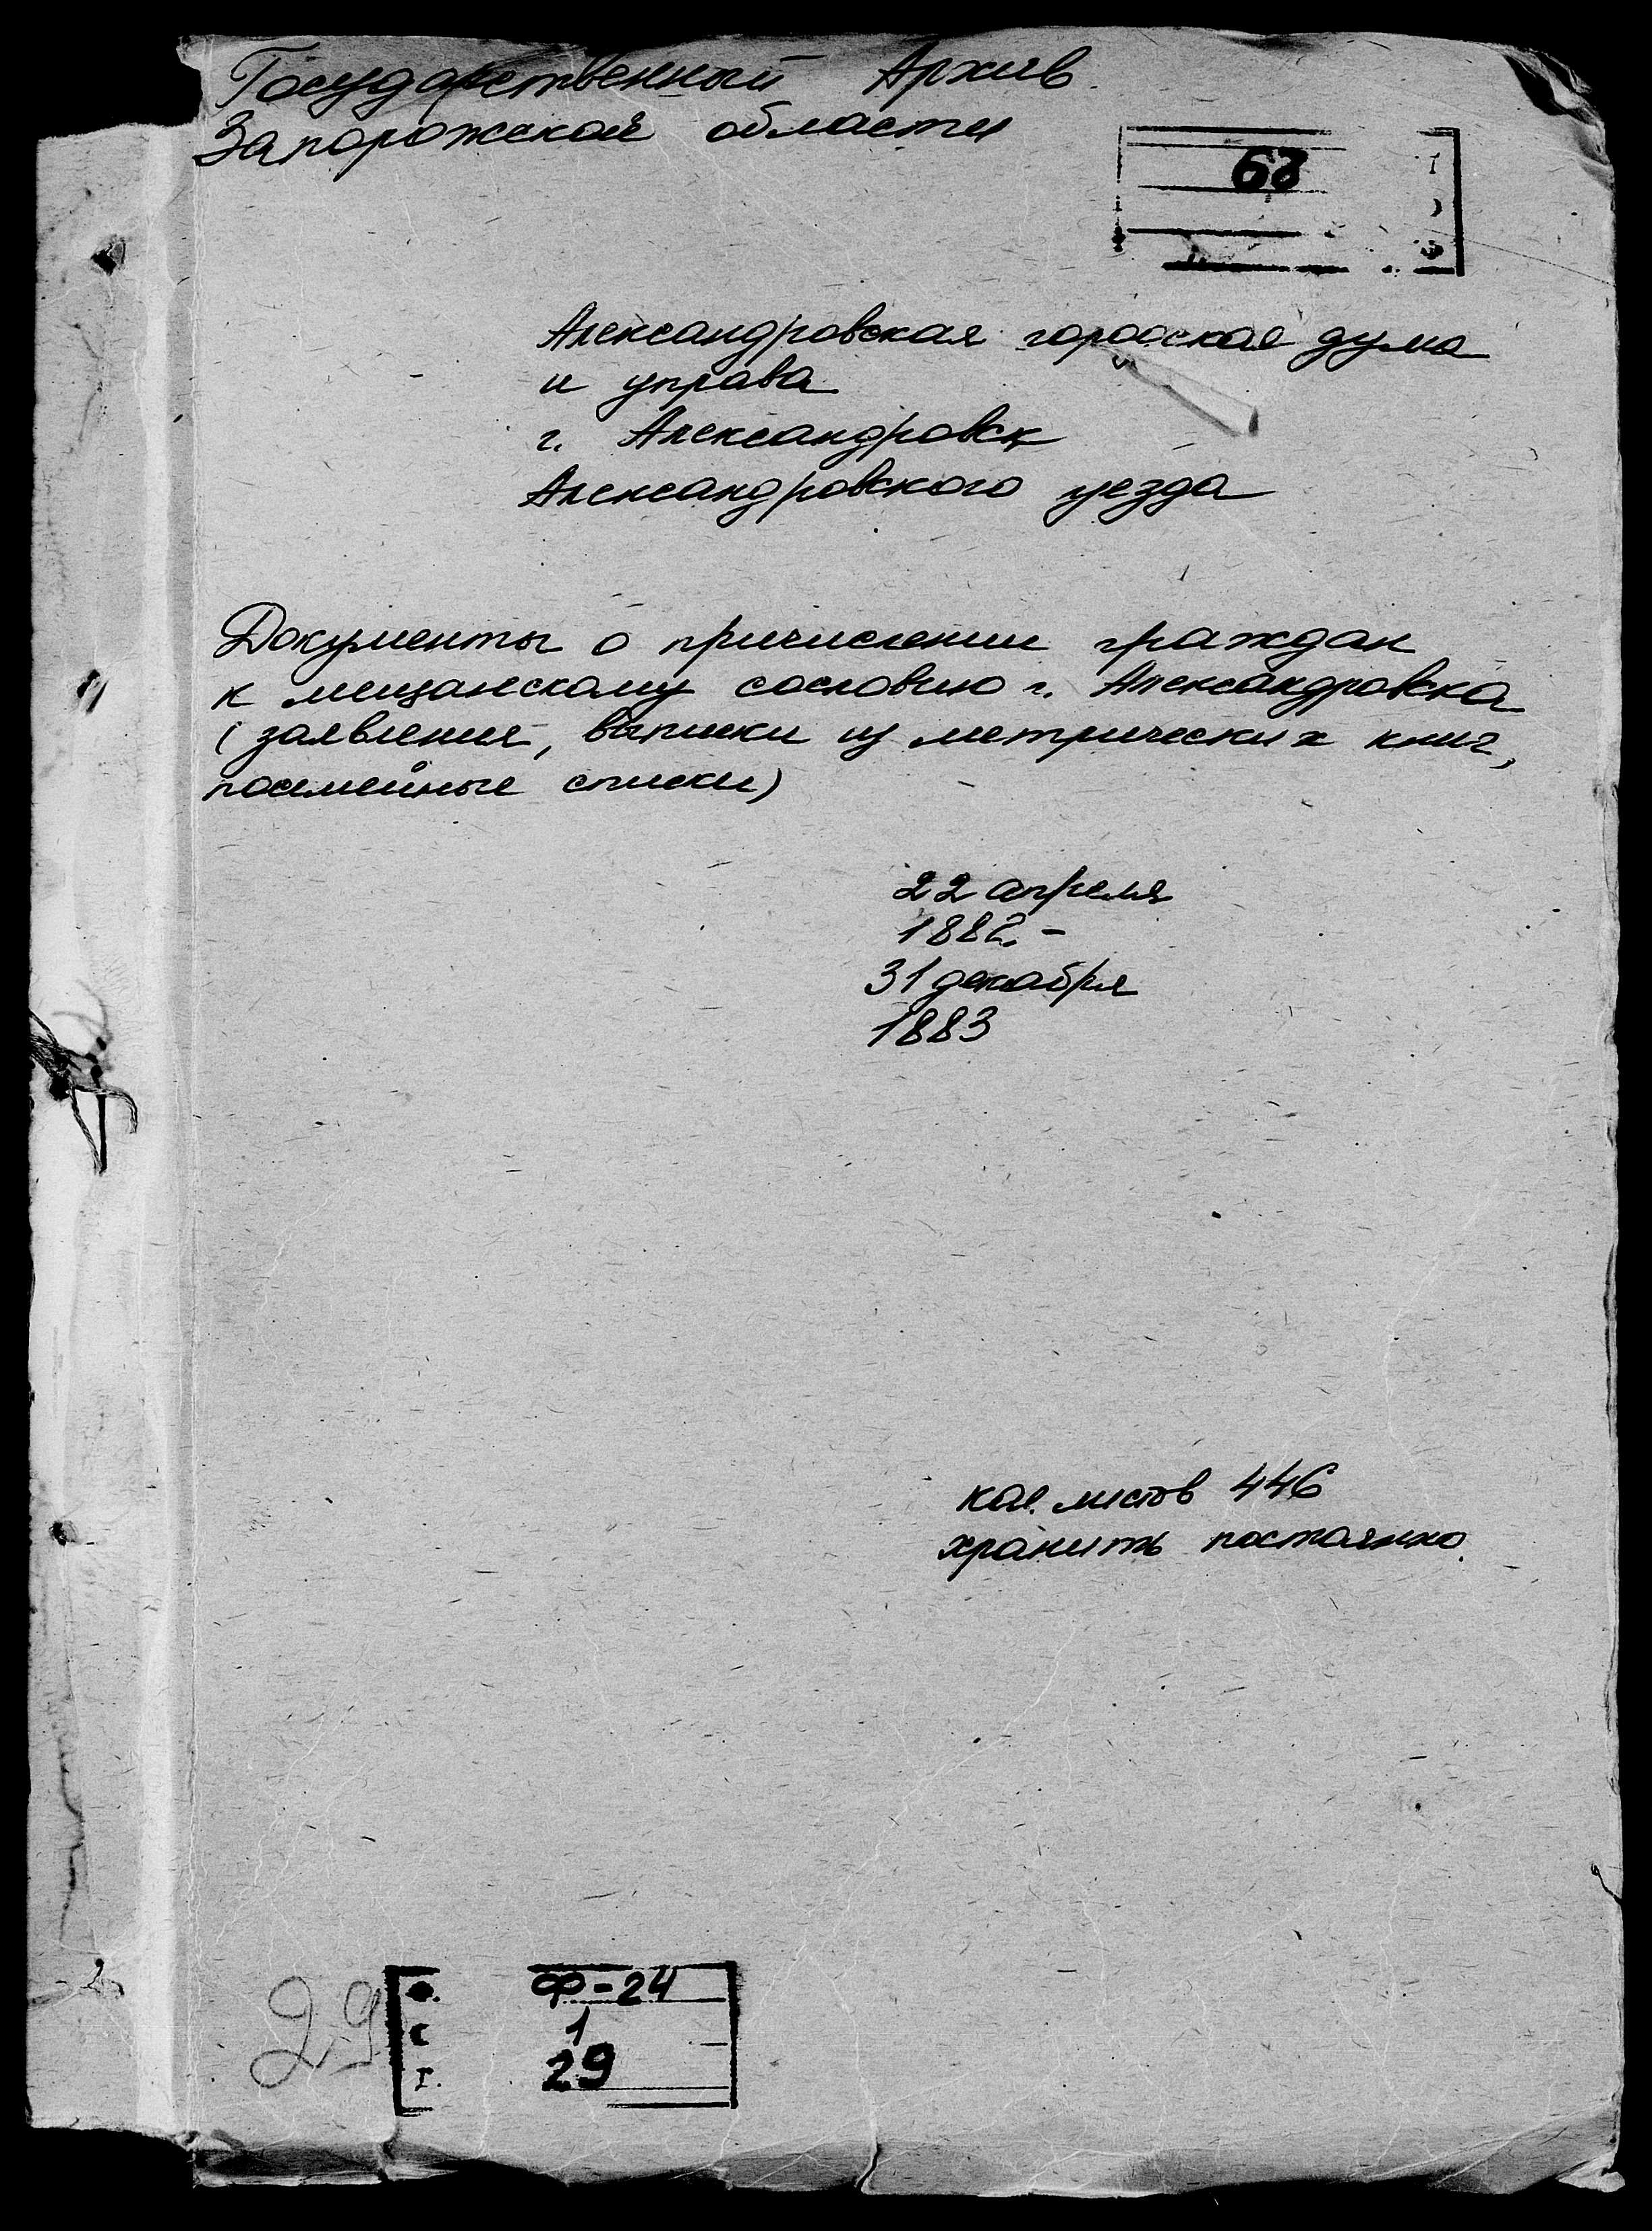 Государственный Архив
Запорожской области
68
Александровская городская дума
и управа
г. Александровск
Александровского уезда
Документы о причислении граждан
к мещанскому сословию г. Александровска
(заявления, выписки из метрических книг,
посемейные списки)
22 апреля
1882. –
31 декабря
1883
кол. листов 446
хранить постоянно.
29
Ф-24
1
29